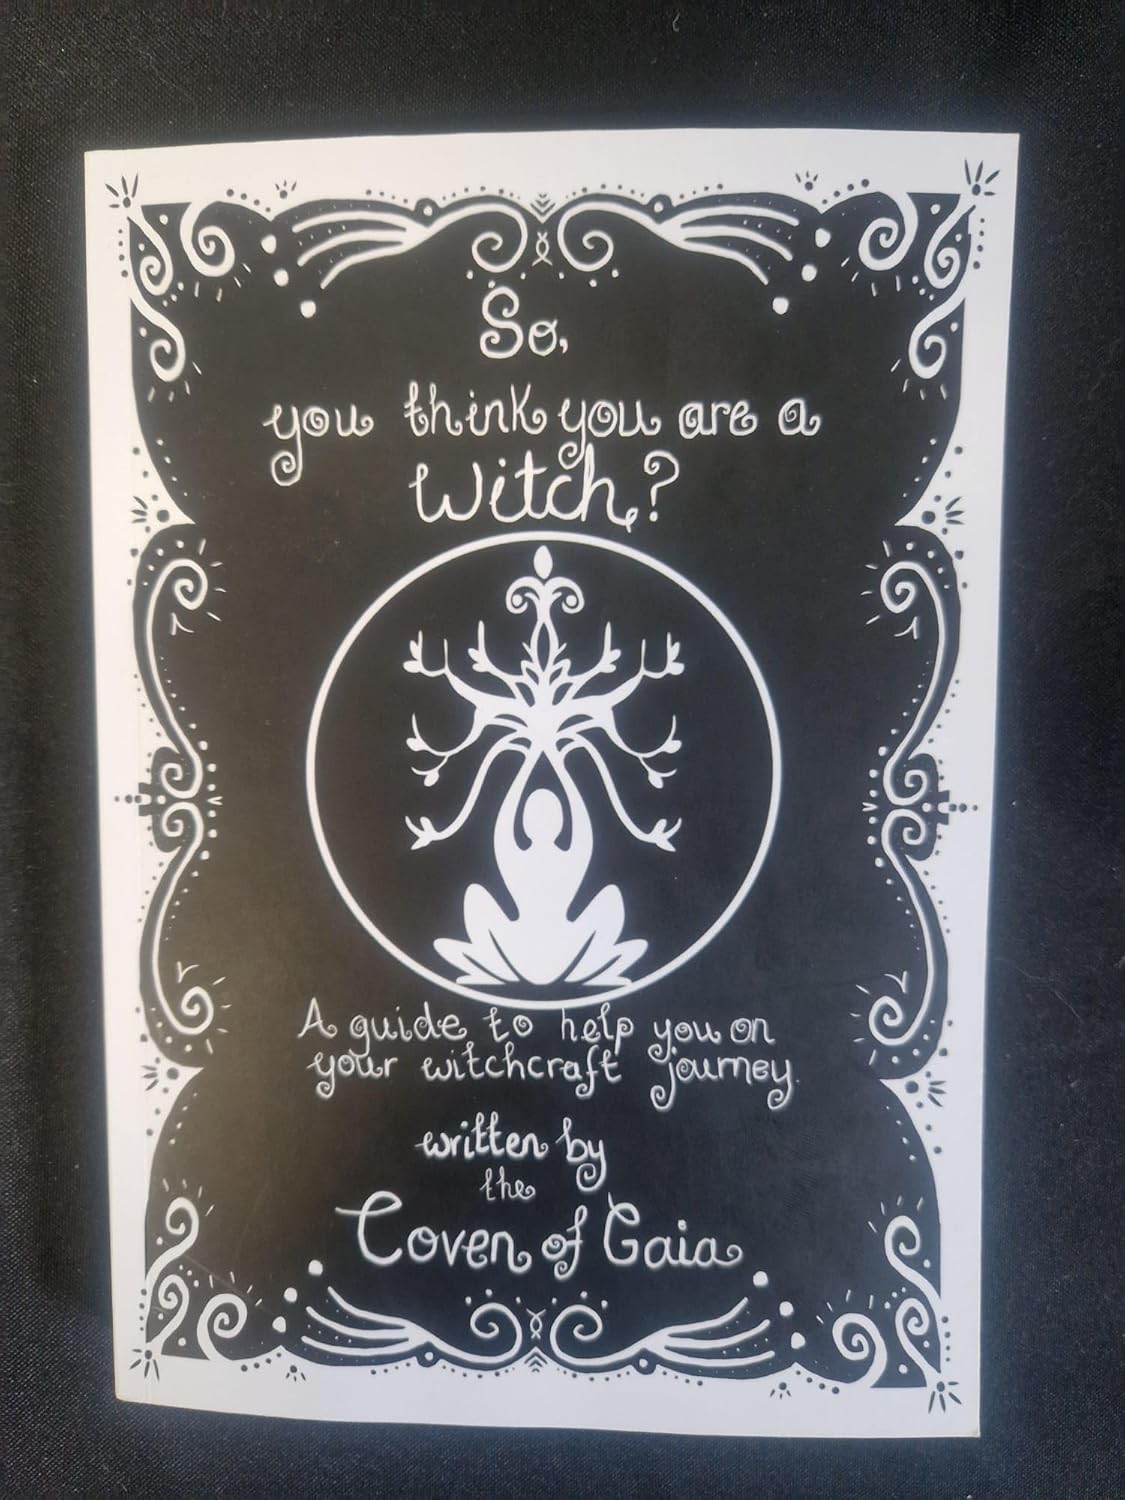 So,
you think you are a
Witch?
A guide to help you on
your witchcraft journey.
written by
the
Coven of Gaia